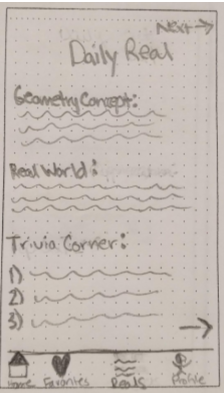 Next →
Daily Real
Geometry Concept:
Real World:
Trivia Corner:
1)
2)
3)
Home Favorites Reals Profile